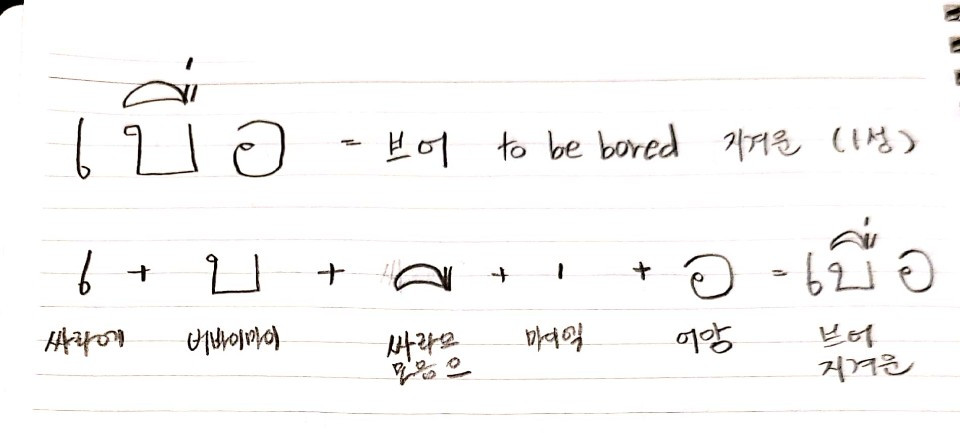 เบื่อ = 브어 to be bored 지겨운 (1성)
เ + บ + ื + ่ + อ = เบื่อ
싸라에 버바이마이 싸라으 마이엑 어앙 브어
모음으 지겨운